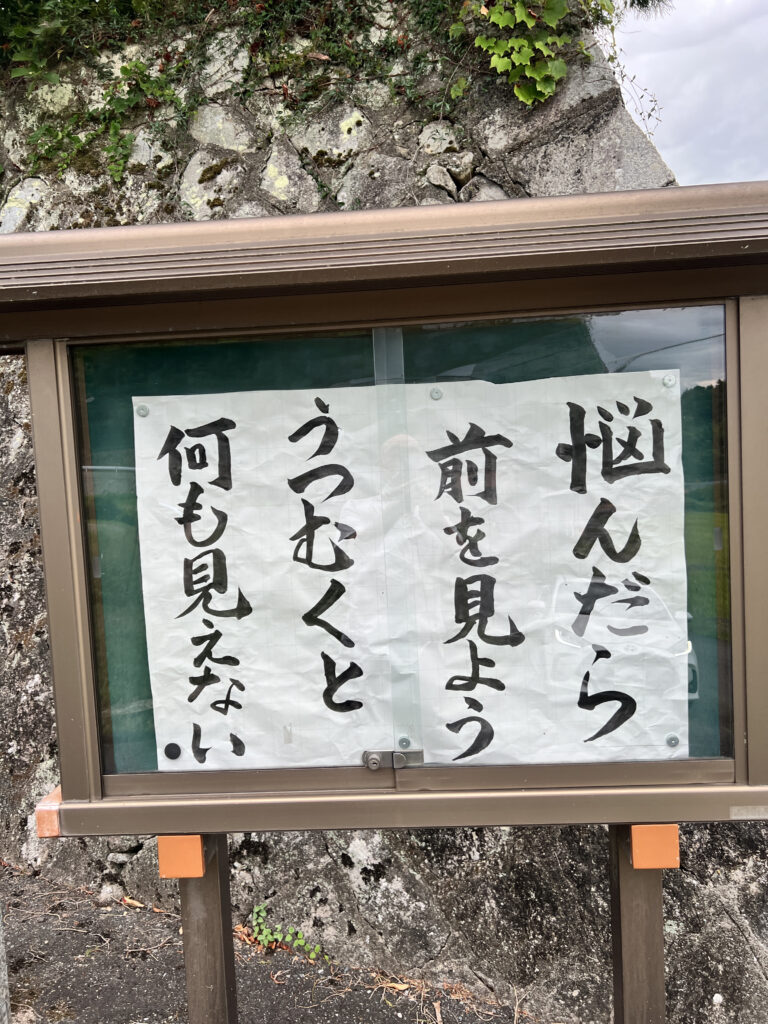 悩んだら
前を見よう
うつむくと
何も見えない